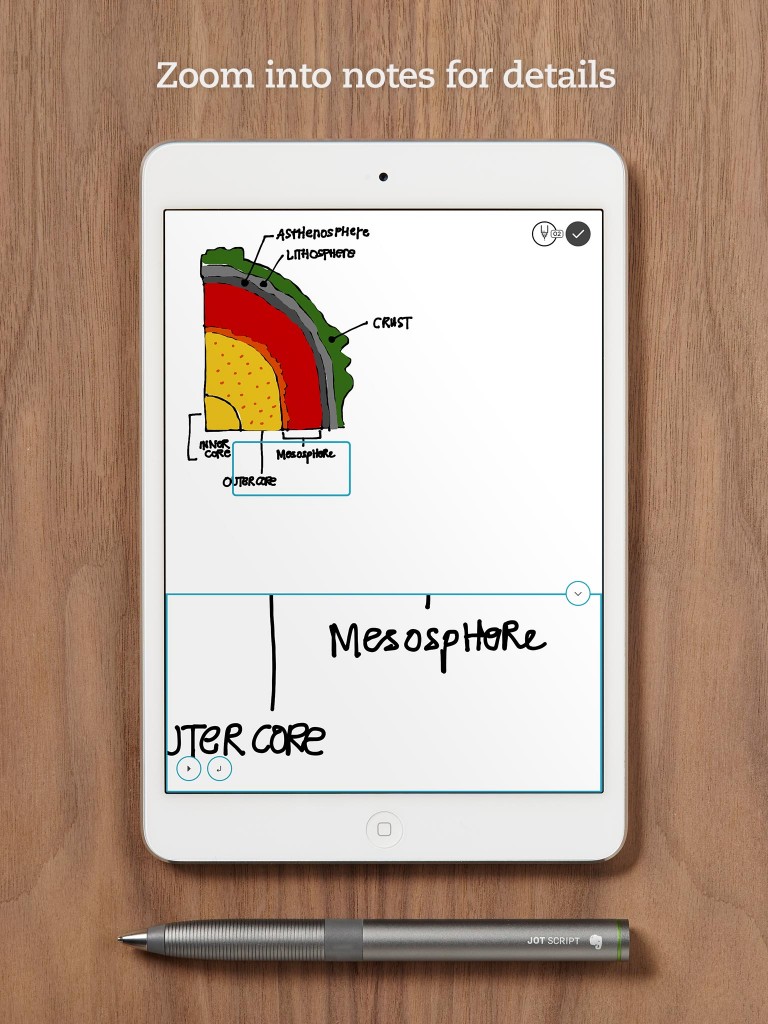 Zoom into notes for details
AstHenospHere
LitHospHere
02
CRUST
INNER
CORE
MesospHeRe
OUTER CORE
MesospHeRe
UTER CORe
JOT SCRIPT